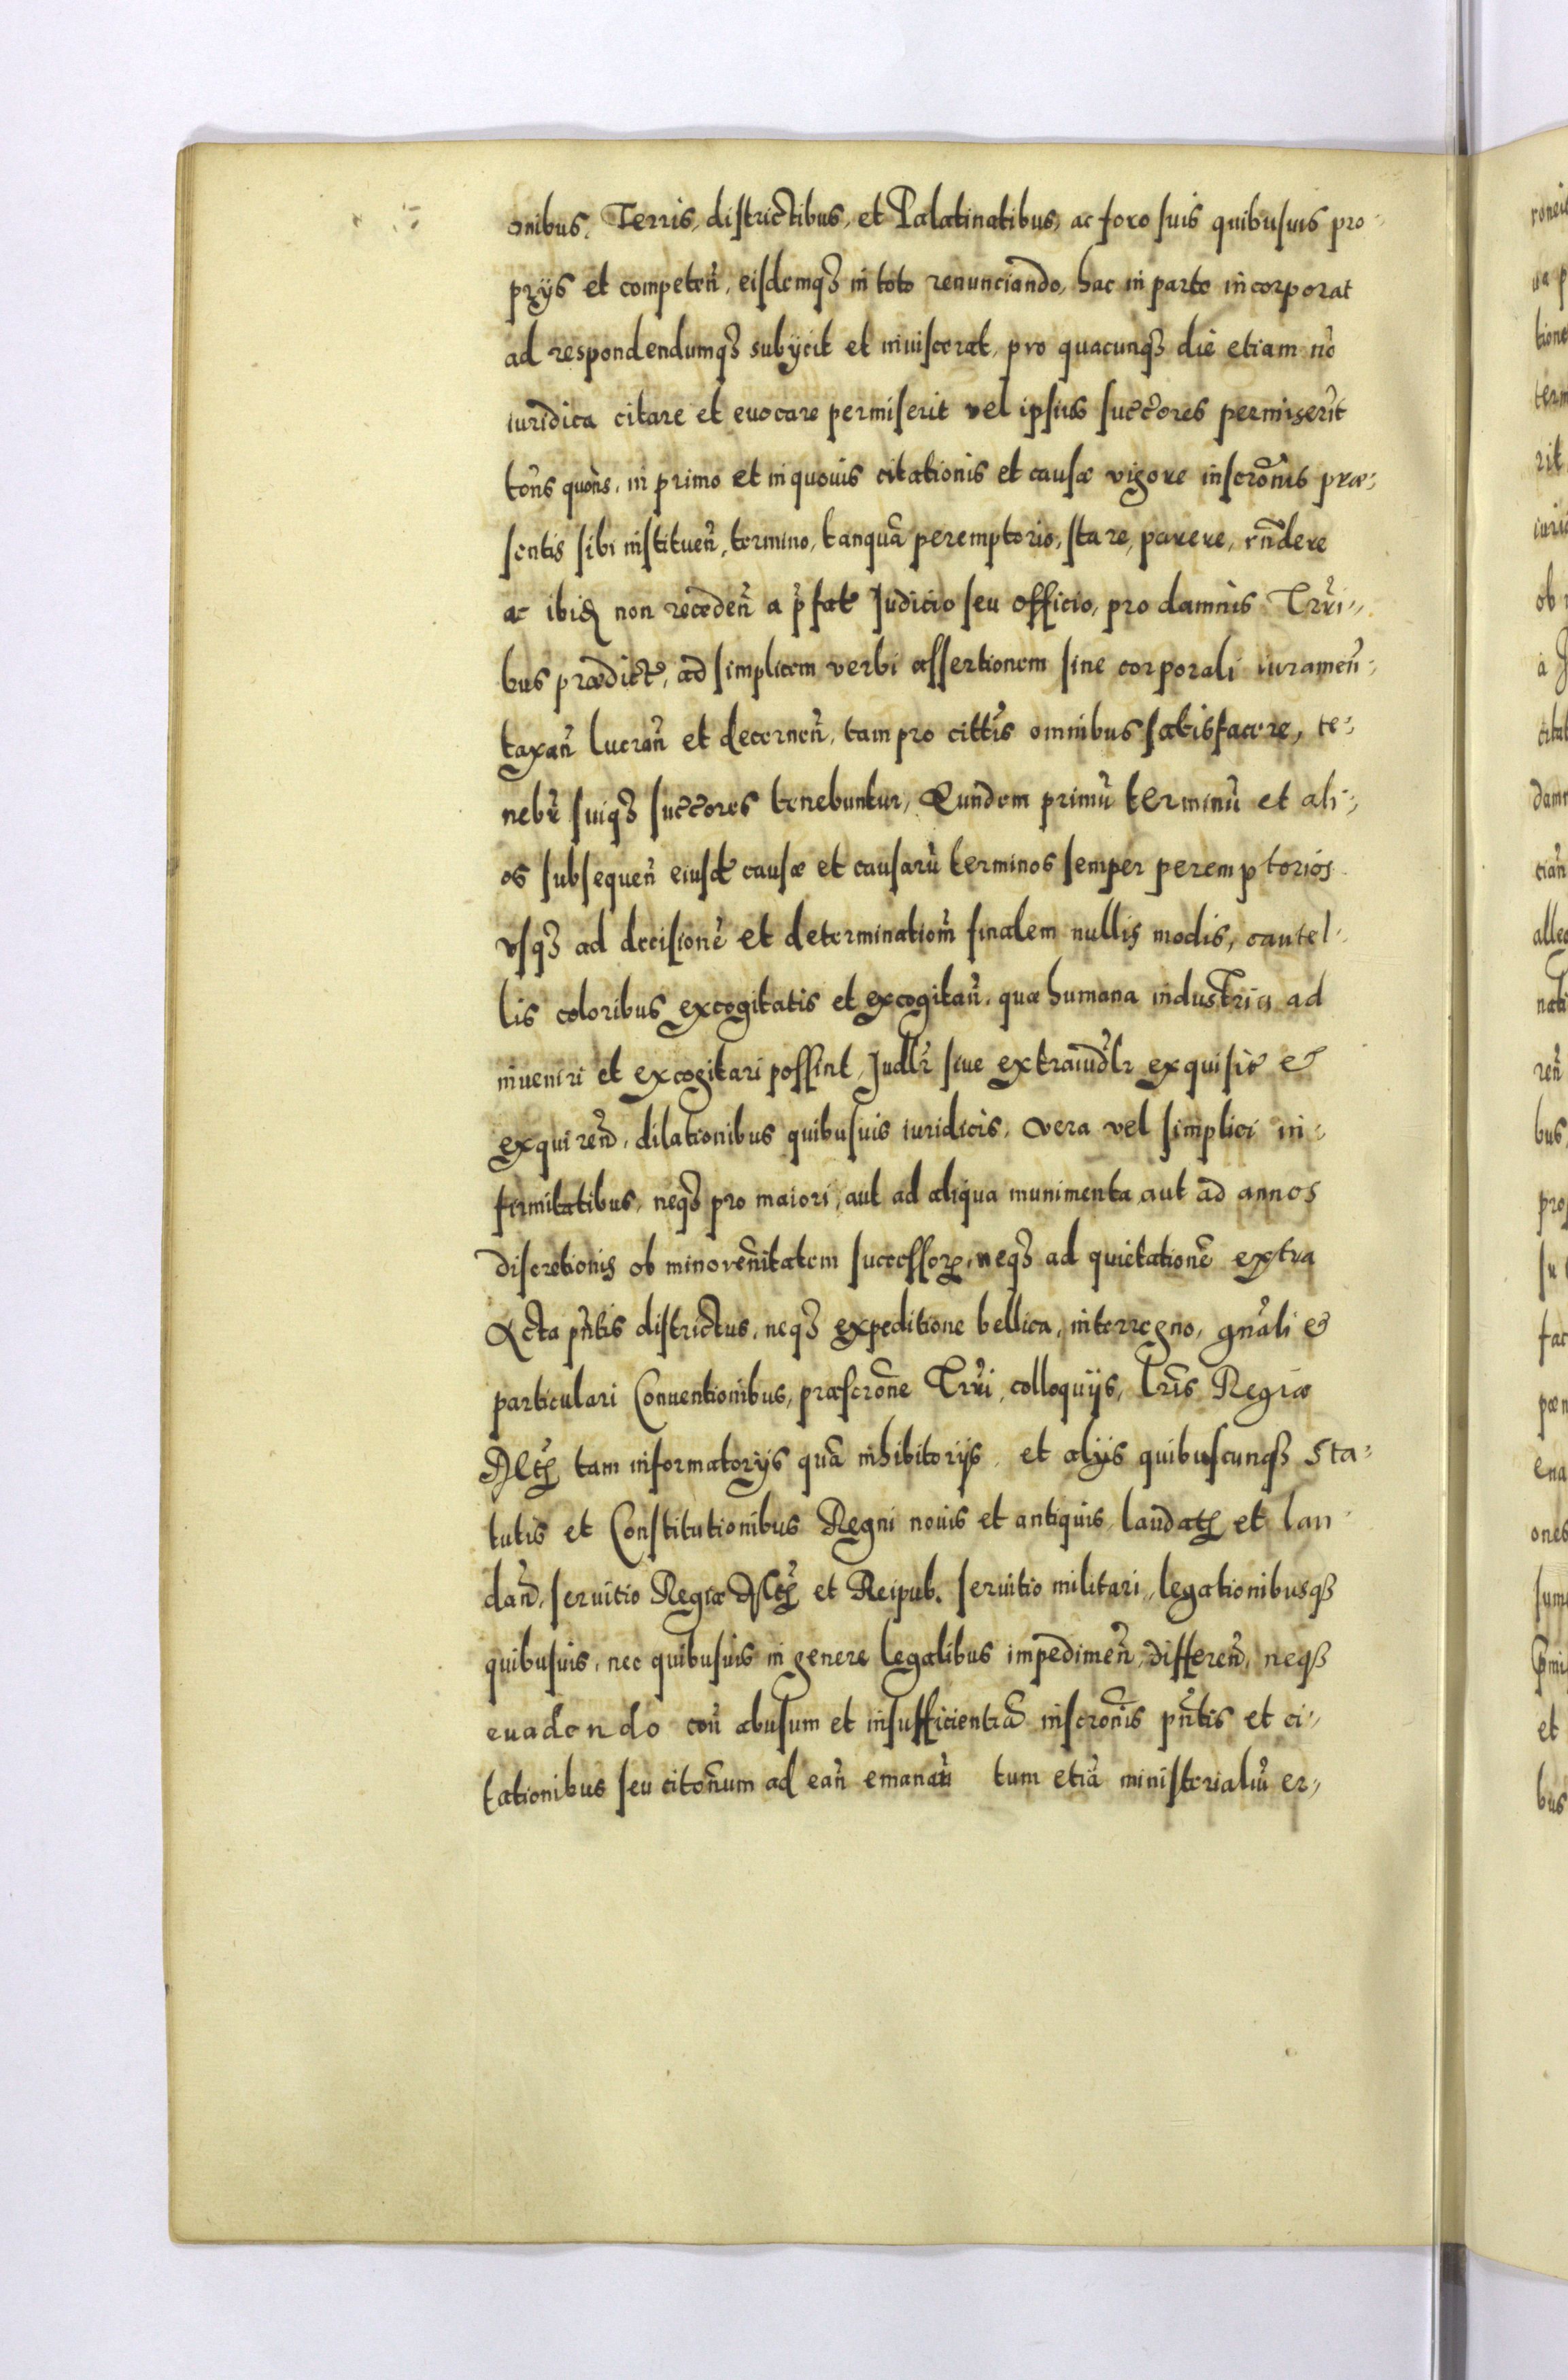 onibus. Terris, districtibus, et Palatinatibus, ac foro suis quibusuis pro-
prijs et competen̄, eisdemqȝ in toto renunciando, hac in parte incorporat
ad respondendumqȝ subijcit et inuiscerat, pro quacunqȝ die etiam nō
iuridica citare et euocare permiserit vel ipsius succ̄ores permiserīt
tōns quōns, in primo et in quouis citationis et causæ vigore inscrōnis præ-
sentis sibi instituen̄, termino, tanquā peremptorio, stare, parere, rn̄dere
ac ibid non receden̄ a p̄fat Judicio seu officio, pro damnis Trr̄i-
bus prædict, ad simplicem verbi assertionem sine corporali iuramen̄-
taxan̄ lucran̄ et decernen̄, tam pro cittīs omnibus satisfacere, te-
nebr̄ suiqȝ succ̄ores tenebuntur, Eundem primū terminū et ali-
os subsequen̄ eiusd causæ et causarū terminos semper peremptorios
vsqȝ ad decisionē et determinationm̄ finalem nullis modis, cautel-
lis coloribus excogitatis et excogitan̄. quæ humana industria ad
inueniri et excogitari possint, Judlr̄ siue extraiudlr̄ exquisit et
exquirend̄, dilationibus quibusuis iuridicis, vera vel simplici in-
firmitatibus, neqȝ pro maiori, aut ad aliqua munimenta aut ad annos
discretionis ob minorennitatem successorꝝ, neqȝ ad quietationē extra
Acta pn̄tis districtus, neqȝ expeditione bellica, interregno, gn̄ali et
particulari Conuentionibus, præscrōne Trr̄i, colloquijs, Lrīs Regiæ
Mtꝭ tam informatorijs quā inhibitorijs, et alijs quibuscunqȝ sta-
tutis et Constitutionibus Regni nouis et antiquis laudatꝭ et lau-
dan̄d, seruitio Regiæ Mtꝭ et Reipub. seruitio militari, legationibusqȝ
quibusuis, nec quibusuis in genere legalibus impedimen̄, differen̄, neqȝ
euadendo con̄ abusum et insufficientiā inscrōnis pn̄tis et ci-
tationibus seu citōnum ad ean̄ emanan̄ tum etiā ministerialiū er-